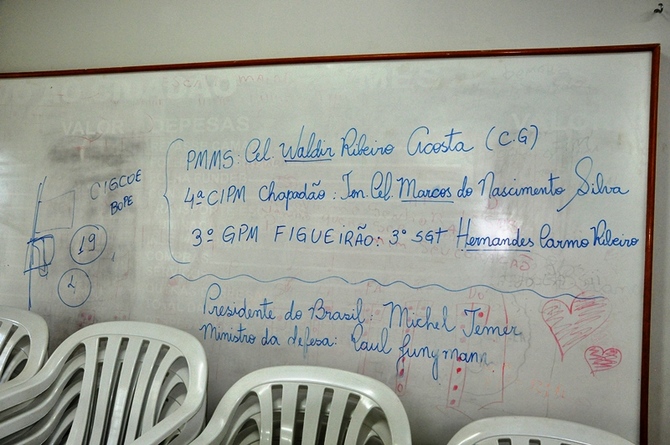 VALOR DEPESAS
CIGCOE
BOPE
19
2
PMMS: Cel. Waldir Ribeiro Acosta (C.G)
4ª CIPM Chapadão: Ten. Cel. Marcos do Nascimento Silva
3º GPM FIGUEIRÃO: 3º SGT Hernandes Carmo Ribeiro
Presidente do Brasil: Michel Temer
Ministro da defesa: Raul Jungmann